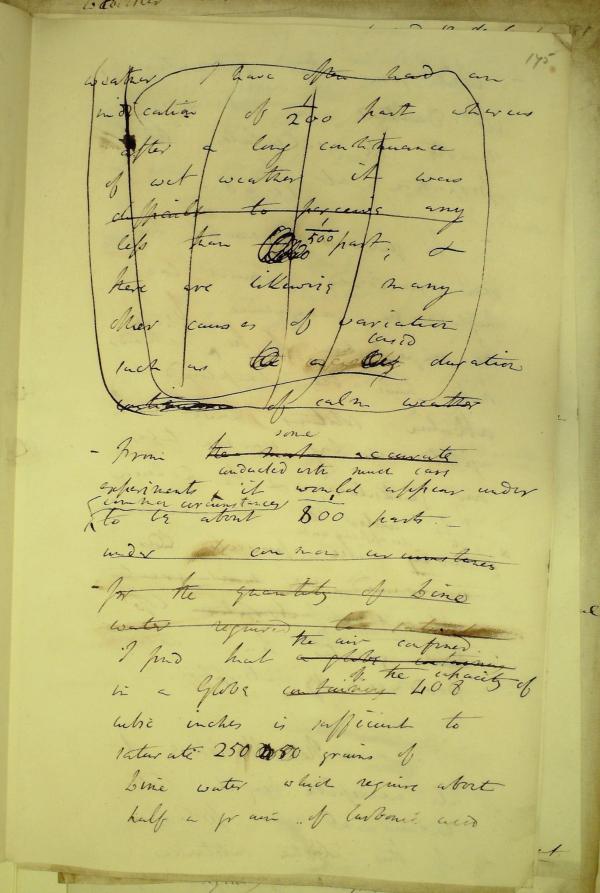 175
weather I have often had an
indication of 1/200 part whereas
after a long continuance
of wet weather it was
difficult to perceive any
less than 1/500 part; &
there are likewise many
other causes of variation
such as duration
of calm weather
some
- From the most accurate
conducted with much care
experiments it would appear under
common circumstances
to be about 1/800 part. -
under common circumstances
- for the quantity of Lime
water required
the air confined
I find that a globe containing
of the capacity of
in a Globe containing 408
cubic inches is sufficient to
saturate 250 grains of
Lime water which require about
half a grain of Carbonic acid